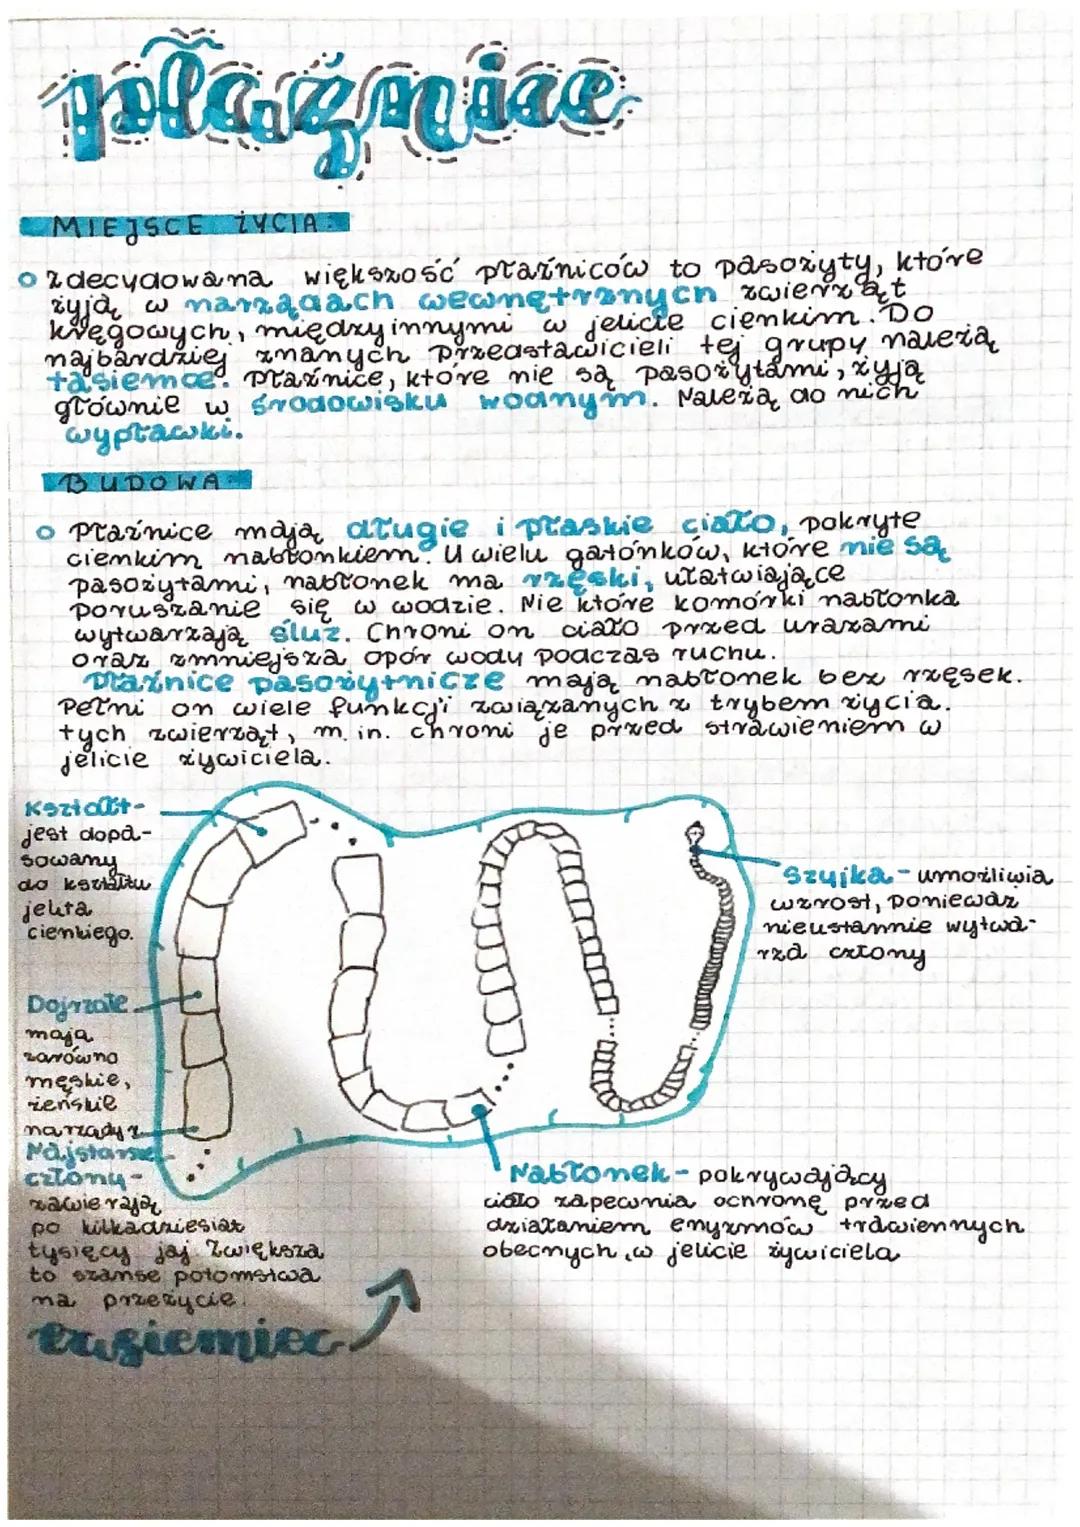 płaźnice
MIEJSCE ŻYCIA:
zdecydowana większość płaźniców to pasożyty, które
żyją w narządach wewnętrznych zwierząt
kręgowych, między innymi w jelicie cienkim. Do
najbardziej znanych przedstawicieli tej grupy należą
tasiemce. Płaźnice, które nie są pasożytami, żyją
głównie w środowisku wodnym. Należą do nich
wypławki.
BUDOWA:
Płaźnice mają długie i płaskie ciało, pokryte
cienkim nabłonkiem. U wielu gatónków, które nie są
pasożytami, nabłonek ma rzęski, ułatwiające
poruszanie się w wodzie. Nie które komórki nabłonka
wytwarzają śluz. Chroni on ciało przed urazami
oraz zmniejsza opór wody podczas ruchu.
Płaźnice pasożytnicze mają nabłonek bez rzęsek.
Pełni on wiele funkcji związanych z trybem życia.
tych zwierząt, m. in. chroni je przed strawieniem w
jelicie żywiciela.
Kształt-
jest dopa-
sowany
do kształtu
jelita
cienkiego.
Szyjka - umożliwia
wzrost, ponieważ
nieustannie wytwa-
rza człony
Dojrzałe
mają
zarówno
męskie,
żeńskie
narządy
Najstarsze
człony-
zawierają
po kilkadziesiąt
tysięcy jaj. Zwiększa
to szanse potomstwa
na przeżycie.
Nabłonek - pokrywający
ciało zapewnia ochronę przed
działaniem enyzmów trawiennych
obecnych w jelicie żywiciela
tasiemiec